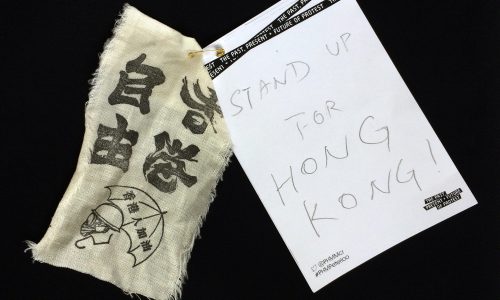 香港
自由
香港人加油
THE PAST, PRESENT + FUTURE OF PROTEST
STAND UP
FOR
HONG
KONG!
@PHMMcr
#PHMPeterloo
THE PAST,
PRESENT + FUTURE
OF PROTEST